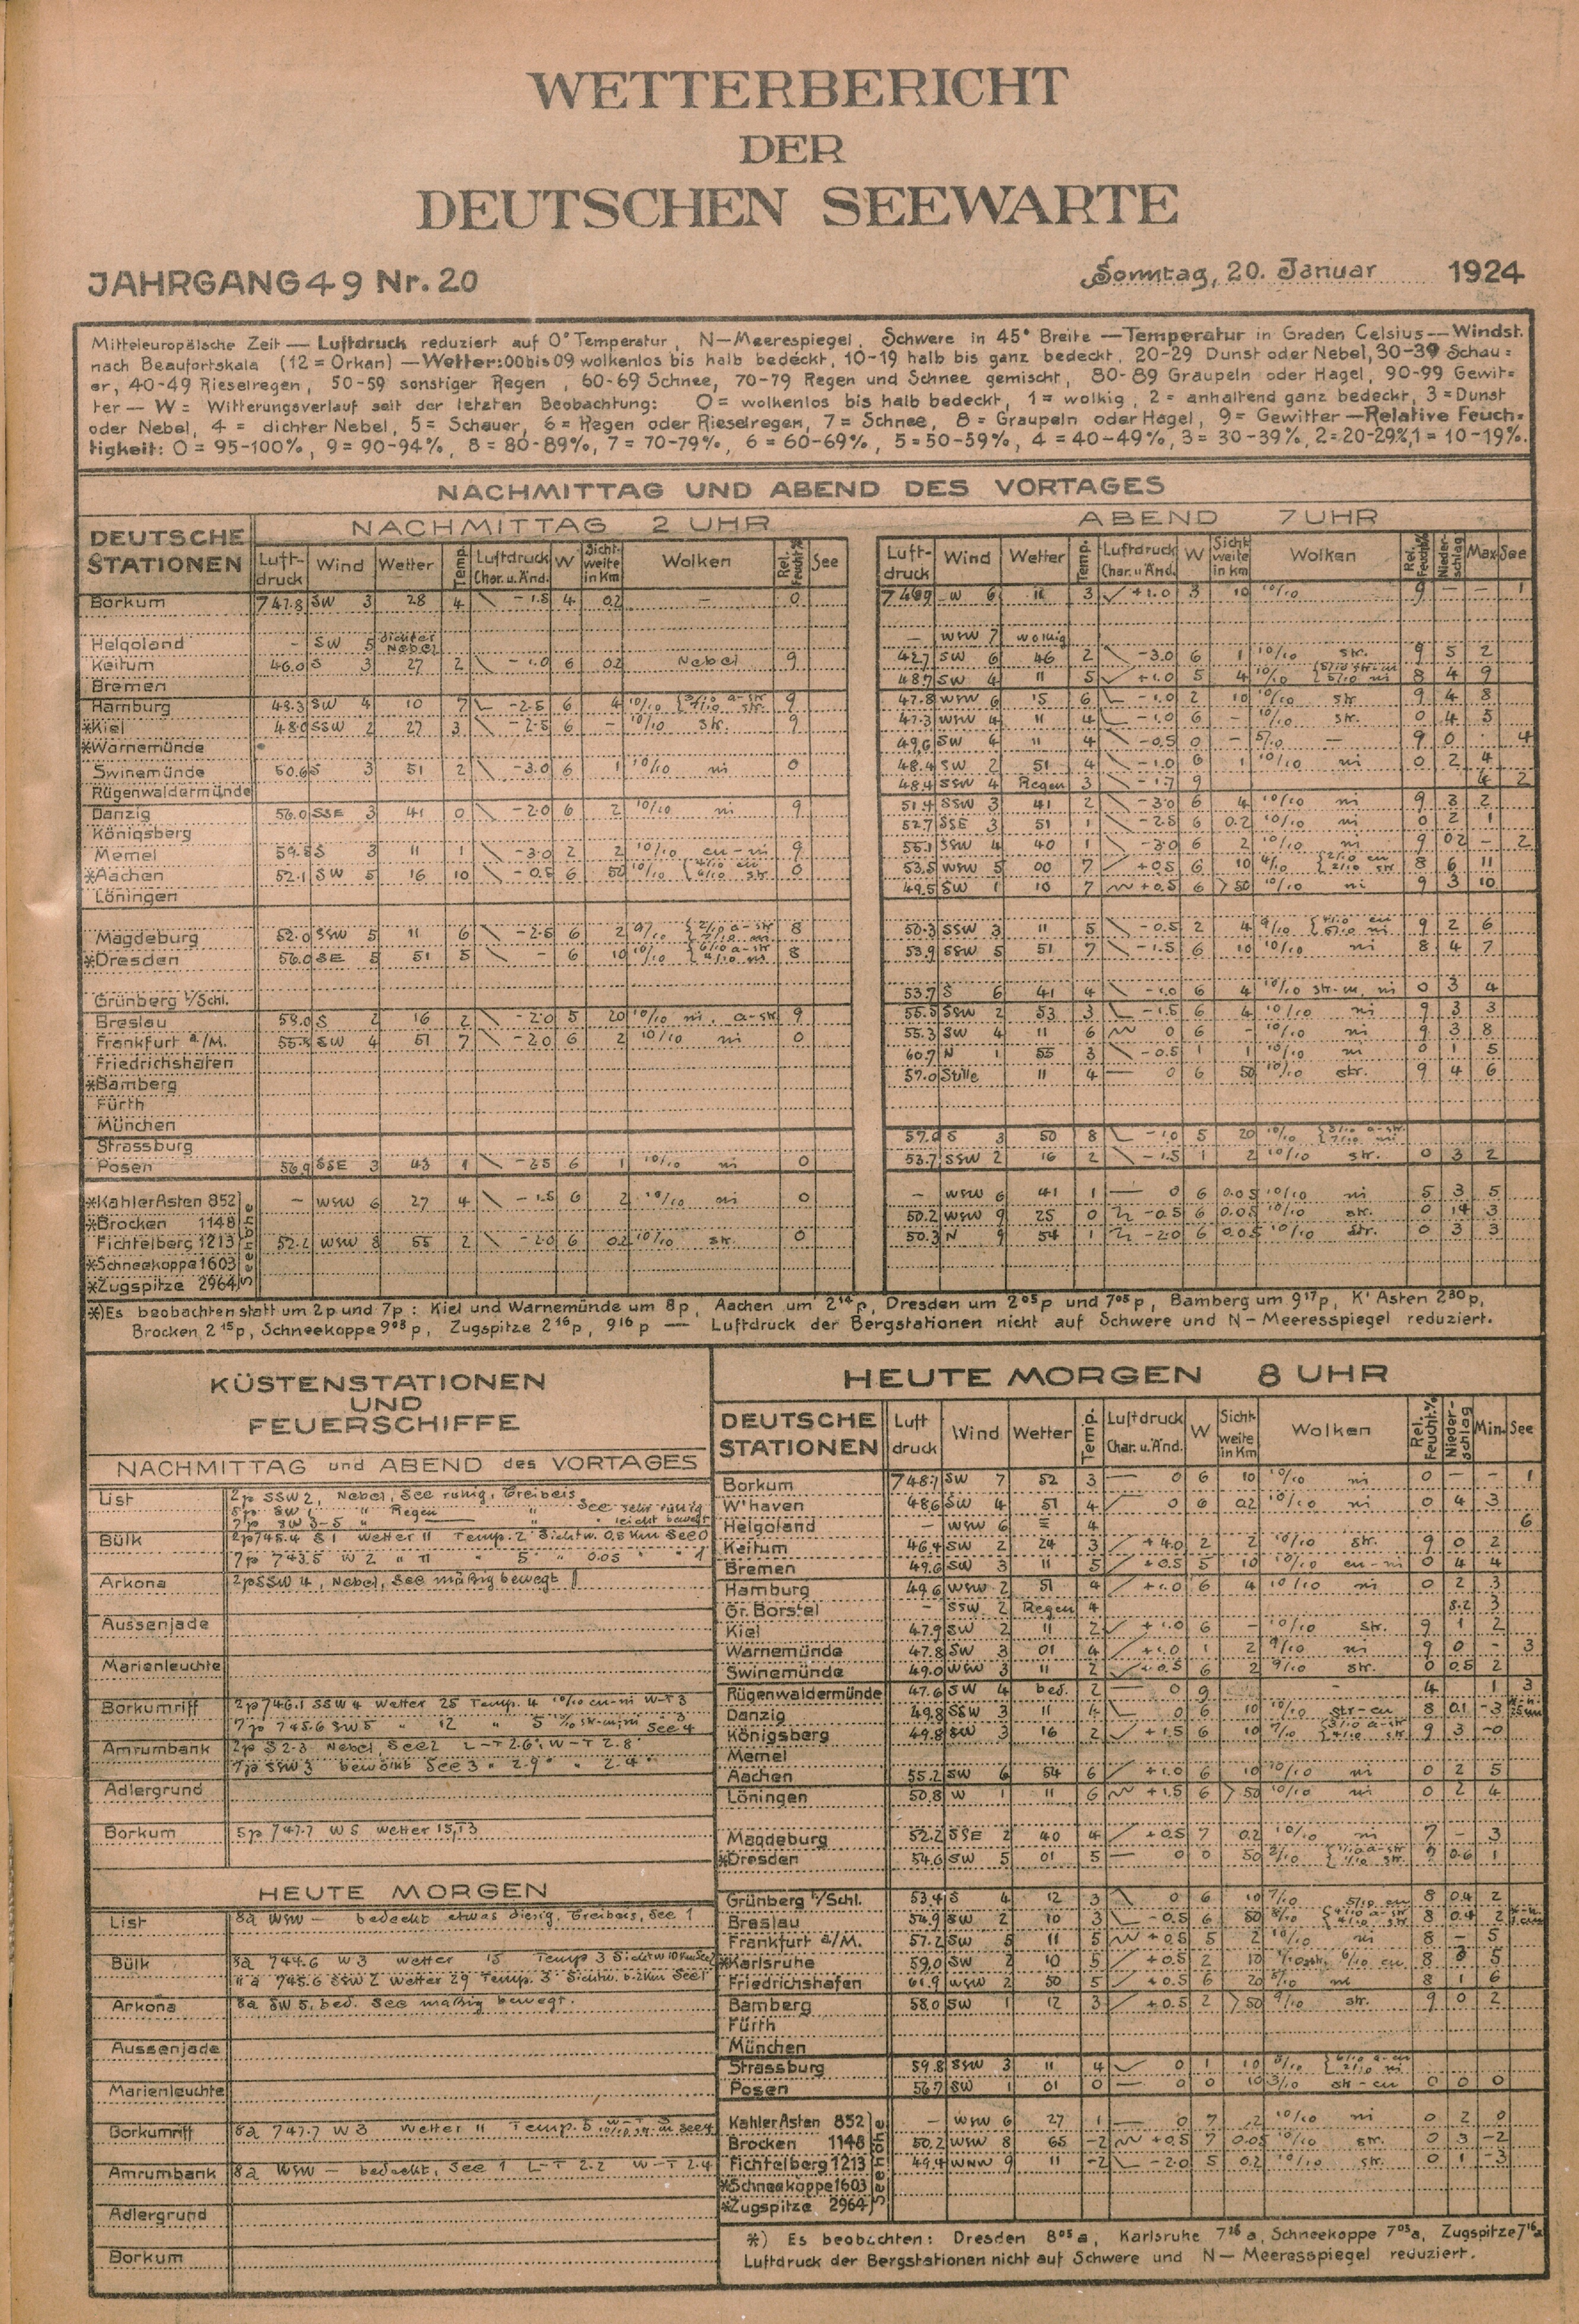 WETTERBERICHT
DER
DEUTSCHEN SEEWARTE
JAHRGANG 49 Nr. 20 Sonntag, 20. Januar 1924
Mitteleuropäische Zeit — Luftdruck reduziert auf 0° Temperatur, N—Meeresspiegel, Schwere in 45° Breite — Temperatur in Graden Celsius — Windst.
nach Beaufortskala (12 = Orkan) — Wetter: 00 bis 09 wolkenlos bis halb bedeckt, 10-19 halb bis ganz bedeckt, 20-29 Dunst oder Nebel, 30-39 Schau=
er, 40-49 Rieselregen, 50-59 sonstiger Regen, 60-69 Schnee, 70-79 Regen und Schnee gemischt, 80-89 Graupeln oder Hagel, 90-99 Gewit=
ter — W = Witterungsverlauf seit der letzten Beobachtung: 0 = wolkenlos bis halb bedeckt, 1 = wolkig, 2 = anhaltend ganz bedeckt, 3 = Dunst
oder Nebel, 4 = dichter Nebel, 5 = Schauer, 6 = Regen oder Rieselregen, 7 = Schnee, 8 = Graupeln oder Hagel, 9 = Gewitter — Relative Feuch=
tigkeit: 0 = 95-100%, 9 = 90-94%, 8 = 80-89%, 7 = 70-79%, 6 = 60-69%, 5 = 50-59%, 4 = 40-49%, 3 = 30-39%, 2 = 20-29%, 1 = 10-19%.
NACHMITTAG UND ABEND DES VORTAGES
DEUTSCHE STATIONEN NACHMITTAG 2 UHR ABEND 7 UHR
Luft-druck Wind Wetter Temp. Luftdruck Char. u. Änd. W Sicht-weite in Km Wolken Rel. Feucht.% See Luft-druck Wind Wetter Temp. Luftdruck Char. u. Änd. W Sicht-weite in Km Wolken Rel. Feucht.% Nieder-schlag Max See
Borkum 747.8 SW 3 28 4 -1.5 4 0.2 — 0 W 6 11 3 +1.0 3 10 10/10 9 — — 1
Helgoland — SW 5 dichter Nebel — WSW 7 wolkig
Keitum 46.0 S 3 27 2 -1.0 6 0.2 Nebel 9 42.7 SW 6 46 2 -3.0 6 1 10/10 str. 9 5 2
Bremen 48.7 SW 4 11 5 +1.0 5 4 10/10 8 4 9
Hamburg 48.3 SW 4 10 7 -2.5 6 4 10/10 9 47.8 WSW 6 15 6 -1.0 2 10 10/10 str 9 4 8
*Kiel 48.0 SSW 2 27 3 -2.5 6 — 10/10 str. 9 47.3 WSW 4 11 4 -1.0 6 — 10/10 str. 0 4 5
*Warnemünde 49.6 SW 4 11 4 -0.5 0 — — 9 0 4
Swinemünde 50.6 S 3 51 2 -3.0 6 1 10/10 ni 0 48.4 SW 2 51 4 -1.0 6 1 10/10 ni 0 2 4
Rügenwaldermünde 48.4 SSW 4 Regen 3 -1.7 9 4 2
Danzig 56.0 SSE 3 41 0 -2.0 6 2 10/10 ni 9 51.4 SSW 3 41 2 -3.0 6 4 10/10 ni 9 3 2
Königsberg 52.7 SSE 3 51 1 -2.5 6 0.2 10/10 ni 0 2 1
Memel 59.5 S 3 11 1 -3.0 2 2 10/10 cu-ni 9 55.1 SSW 4 40 1 -3.0 6 2 10/10 ni 9 0.2 — 2
*Aachen 52.1 SW 5 16 10 -0.5 6 50 10/10 53.5 WSW 5 00 7 +0.5 6 10 4/10 8 6 11
Löningen 49.5 SW 1 10 7 +0.5 6 >50 10/10 ni 9 3 10
Magdeburg 52.0 SSW 5 11 6 -2.5 6 2 8 50.3 SSW 3 11 5 -0.5 2 4 9/10 9 2 6
*Dresden 56.0 SE 5 51 5 — 6 10 10/10 8 53.9 SSW 5 51 7 -1.5 6 10 10/10 ni 8 4 7
Grünberg i/Schl. 53.7 S 6 41 4 -1.0 6 4 10/10 str-cu, ni 0 3 4
Breslau 58.0 S 2 16 2 -2.0 5 20 10/10 ni, a-str 9 55.5 SSW 2 53 3 -1.5 6 4 10/10 ni 9 3 3
Frankfurt a/M. 55.5 SW 4 51 7 -2.0 6 2 10/10 ni 0 55.3 SW 4 11 6 0 6 — 10/10 ni 9 3 8
Friedrichshafen 60.7 N 1 55 3 -0.5 1 1 10/10 ni 0 1 5
*Bamberg 57.0 Stille 11 4 — 0 6 50 10/10 str. 9 4 6
Fürth
München
Strassburg 57.0 S 3 50 8 -1.0 5 20 10/10
Posen 56.9 SSE 3 43 1 -2.5 6 1 10/10 ni 0 53.7 SSW 2 16 2 -1.5 1 2 10/10 str. 0 3 2
Seehöhe
*Kahler Asten 852 — WSW 6 27 4 -1.5 6 2 10/10 ni 0 — WSW 6 41 1 — 0 6 0.05 10/10 ni 5 3 5
*Brocken 1148 50.2 WSW 9 25 0 -0.5 6 0.05 10/10 str. 0 14 3
Fichtelberg 1213 52.2 WSW 8 55 2 -2.0 6 0.2 10/10 str. 0 50.3 N 9 54 1 -2.0 6 0.05 10/10 str. 0 3 3
*Schneekoppe 1603
*Zugspitze 2964
*) Es beobachten statt um 2p und 7p: Kiel und Warnemünde um 8p, Aachen um 2¹⁴p, Dresden um 2⁰⁵p und 7⁰⁵p, Bamberg um 9¹⁷p, K' Asten 2³⁰p,
Brocken 2¹⁵p, Schneekoppe 9⁰³p, Zugspitze 2¹⁶p, 9¹⁶p — Luftdruck der Bergstationen nicht auf Schwere und N—Meeresspiegel reduziert.
KÜSTENSTATIONEN
UND
FEUERSCHIFFE
NACHMITTAG und ABEND des VORTAGES
List 2p SSW 2, Nebel, See ruhig, Treibeis
5p SW 1, " Regen " See sehr ruhig
7p SW 3-5 " — " " leicht bewegt
Bülk 2p 745.4 S 1 Wetter 11 Temp. 2 Sichtw. 0.5 Km See 0
7p 743.5 W 2 " 11 " 5 " 0.05 " " 1
Arkona 2p SSW 4, Nebel, See mäßig bewegt
Aussenjade
Marienleuchte
Borkumriff 2p 746.1 SSW 4 Wetter 25 Temp. 4 10/10 cu-ni W-T 3
7p 745.6 SW 5 " 12 " 5 See 4
Amrumbank 2p S 2-3 Nebel See 2 L-T 2.6, W-T 2.8
7p SSW 3 bewölkt See 3 " 2.9 " " 2.4
Adlergrund
Borkum 5p 747.7 W 5 Wetter 15, T 3
HEUTE MORGEN
List 8a WSW — bedeckt etwas diesig, Treibeis, See 1
Bülk 8a 744.6 W 3 Wetter 15 Temp 3 Sichtw 10 Km See 2
11a 745.6 SSW 2 Wetter 29 Temp. 3 Sichtw. 0.2 Km See 1
Arkona 8a SW 5, bed. See mäßig bewegt.
Aussenjade
Marienleuchte
Borkumriff 8a 747.7 W 3 Wetter 11 Temp. 5 See 4
Amrumbank 8a WSW — bedeckt, See 1 L-T 2.2 W-T 2.4
Adlergrund
Borkum
HEUTE MORGEN 8 UHR
DEUTSCHE STATIONEN Luft druck Wind Wetter Temp. Luftdruck Char. u. Änd. W Sicht-weite in Km Wolken Rel. Feucht.% Nieder-schlag Min. See
Borkum 748.1 SW 7 52 3 — 0 6 10 10/10 ni 0 — — 1
W'haven 48.6 SW 4 51 4 0 6 0.2 10/10 ni 0 4 3
Helgoland — WSW 6 ≡ 4 6
Keitum 46.4 SW 2 24 3 +4.0 2 2 10/10 str. 9 0 2
Bremen 49.6 SW 3 11 5 +0.5 5 10 10/10 cu-ni 0 4 4
Hamburg 49.6 WSW 2 51 4 +1.0 6 4 10/10 ni 0 2 3
Gr. Borstel — SSW 2 Regen 4 8.2 3
Kiel 47.9 SW 2 11 2 +1.0 6 — 10/10 str. 9 1 2
Warnemünde 47.8 SW 3 01 4 +1.0 1 2 9/10 ni 9 0 — 3
Swinemünde 49.0 WSW 3 11 2 +0.5 6 2 9/10 str. 0 0.5 2
Rügenwaldermünde 47.6 SW 4 bed. 2 — 0 9 - 4 1 3
Danzig 49.8 SSW 3 11 4 0 6 10 10/10 str-cu 8 0.1 -3
Königsberg 49.8 SW 3 16 2 +1.5 6 10 9/10 9 3 -0
Memel
Aachen 55.2 SW 6 54 6 +1.0 6 10 10/10 ni 0 2 5
Löningen 50.8 W 1 11 6 +1.5 6 >50 10/10 ni 0 2 4
Magdeburg 52.2 SSE 2 40 4 +0.5 7 0.2 10/10 ni 7 — 3
*Dresden 54.6 SW 5 01 5 — 0 0 50 2/10 7 0.6 1
Grünberg i/Schl. 53.4 S 4 12 3 0 6 10 7/10 8 0.4 2
Breslau 54.9 SW 2 10 3 -0.5 6 50 8/10 8 0.4 2
Frankfurt a/M. 57.2 SW 5 11 5 +0.5 5 2 10/10 ni 8 — 5
*Karlsruhe 59.0 SW 2 10 5 +0.5 2 10 8 3 5
Friedrichshafen 61.9 WSW 2 50 5 +0.5 6 20 8/10 ni 8 1 6
Bamberg 58.0 SW 1 12 3 +0.5 2 >50 9/10 str. 9 0 2
Fürth
München
Strassburg 59.8 SSW 3 11 4 0 1 10 8/10
Posen 56.7 SW 1 01 0 — 0 0 10 3/10 str-cu 0 0 0
Seehöhe
Kahler Asten 852 — WSW 6 27 1 — 0 7 .2 10/10 ni 0 2 0
Brocken 1148 50.2 WSW 8 65 -2 +0.5 7 0.05 10/10 str. 0 3 -2
Fichtelberg 1213 49.4 WNW 9 11 -2 -2.0 5 0.2 10/10 str. 0 1 -3
*Schneekoppe 1603
*Zugspitze 2964
*) Es beobachten: Dresden 8⁰⁵a, Karlsruhe 7³⁶a, Schneekoppe 7⁰³a, Zugspitze 7¹⁶a
Luftdruck der Bergstationen nicht auf Schwere und N—Meeresspiegel reduziert.